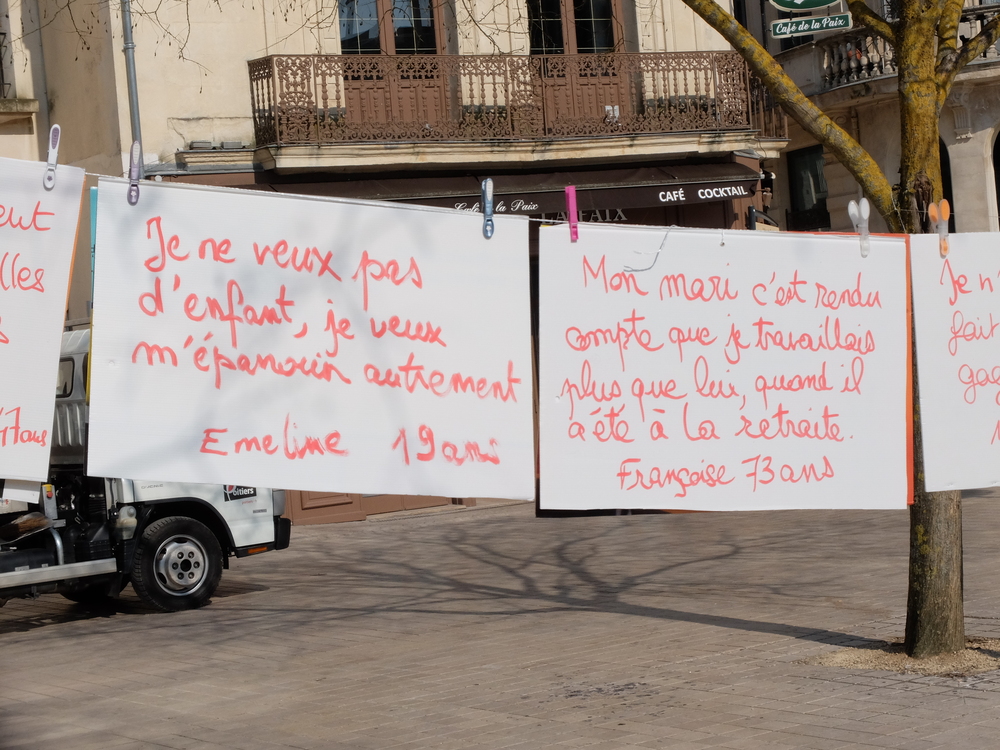 Café de la Paix
Café de la Paix
CAFÉ COCKTAIL
Je ne veux pas
d'enfant, je veux
m'épanouir autrement
Emeline 19 ans
Mon mari c'est rendu
compte que je travaillais
plus que lui, quand il
a été à la retraite.
Françoise 73 ans
47ans
Je n'
fait
gag
Poitiers